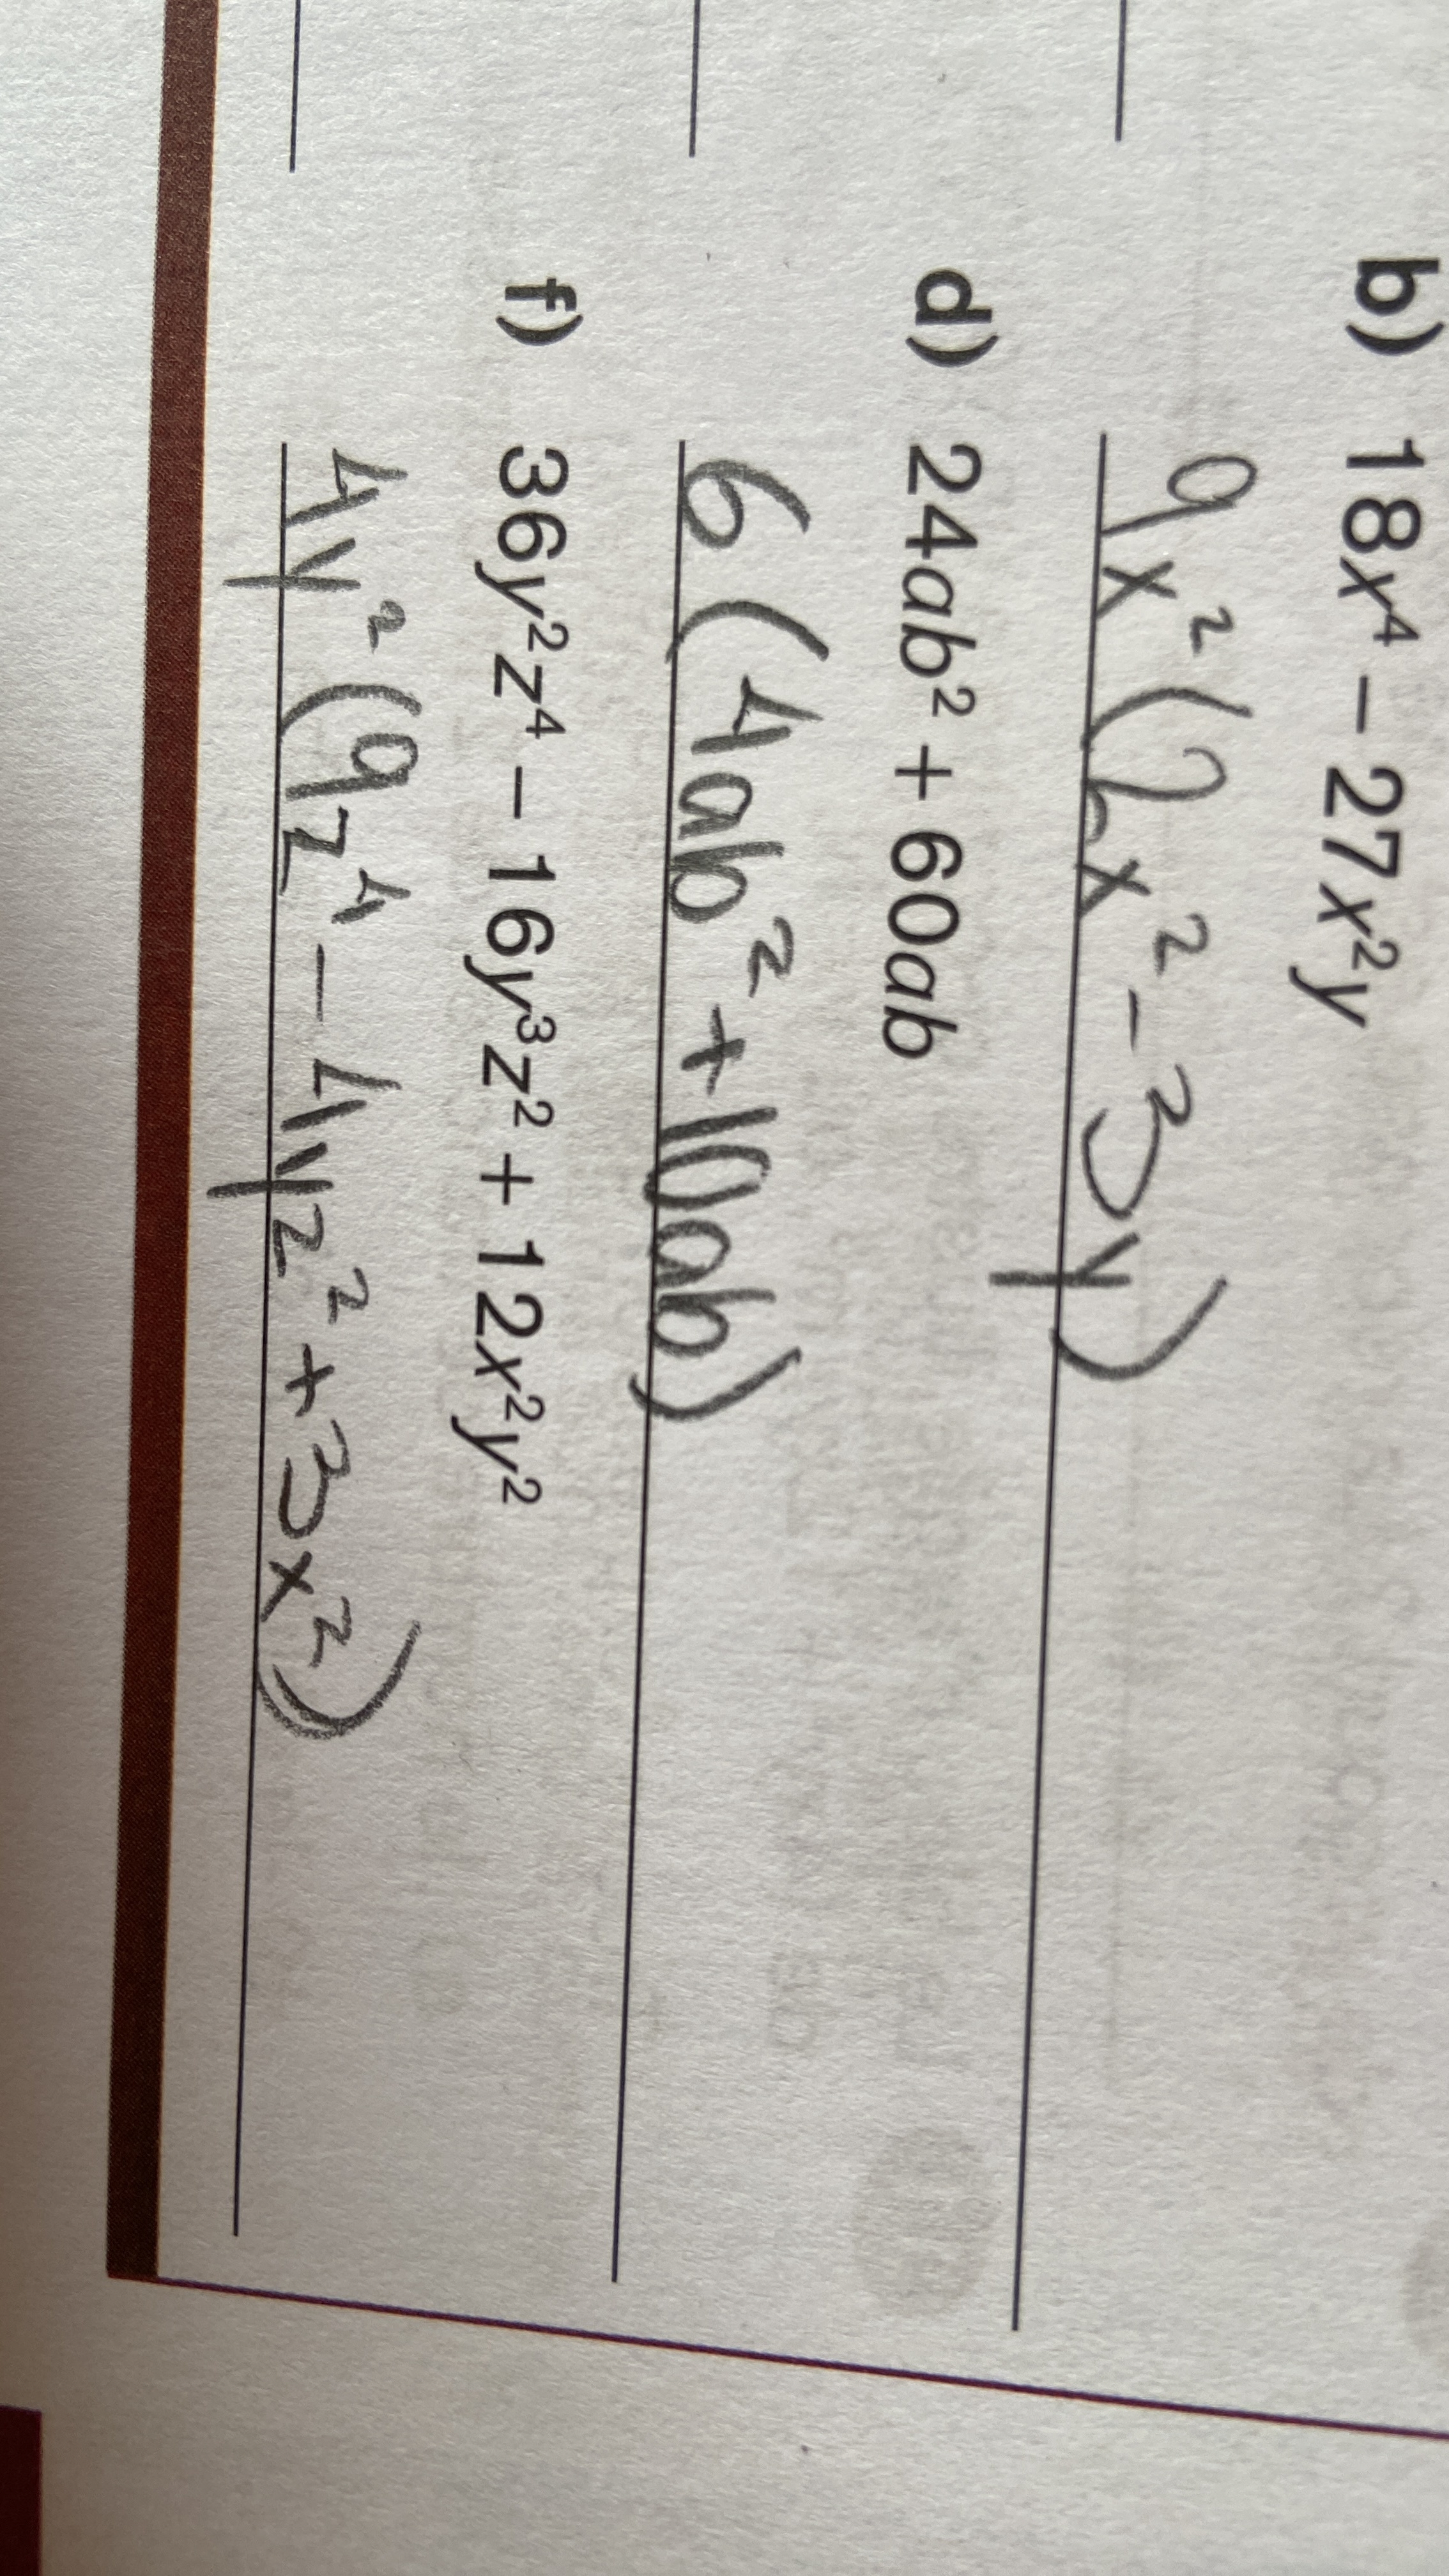 b) 18x⁴ – 27x²y
9x²(2x² – 3y)
d) 24ab² + 60ab
6(4ab² + 10ab)
f) 36y²z⁴ – 16y³z² + 12x²y²
4y²(9z⁴ – 4yz² + 3x²)